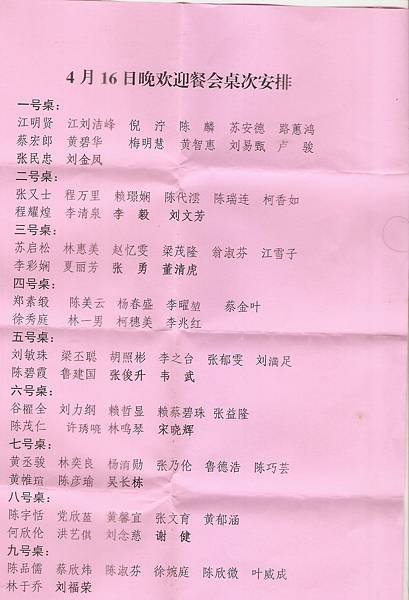 4月16日晚欢迎餐会桌次安排
一号桌:
江明贤 江刘洁峰 倪泞 陈麟 苏安德 路蕙鸿
蔡宏郎 黄碧华 梅明慧 黄智惠 刘易甄 卢骏
张民忠 刘金凤
二号桌:
张又士 程万里 赖璟娴 陈代澐 陈瑞连 柯香如
程耀煌 李清泉 李毅 刘文芳
三号桌:
苏启松 林惠美 赵忆雯 梁茂隆 翁淑芬 江雪子
李彩娴 夏丽芳 张勇 董清虎
四号桌:
郑素缎 陈美云 杨春盛 李曜堃 蔡金叶
徐秀庭 林一男 柯穗美 李兆红
五号桌:
刘敏珠 梁丕聪 胡照彬 李之台 张郁雯 刘满足
陈碧霞 鲁建国 张俊升 韦武
六号桌:
谷櫂全 刘力纲 赖哲显 赖蔡碧珠 张益隆
陈茂仁 许琇喨 林鸣琴 宋晓辉
七号桌:
黄丞骏 林奕良 杨洧勋 张乃伦 鲁德浩 陈巧芸
黄帷瑄 陈彦瑜 吴长栋
八号桌:
陈宇恬 党欣蓝 黄馨宜 张文育 黄郁涵
何欣伦 洪艺倛 刘念慈 谢健
九号桌:
陈品儒 蔡欣炜 陈淑芬 徐婉庭 陈欣微 叶威成
林于乔 刘福荣